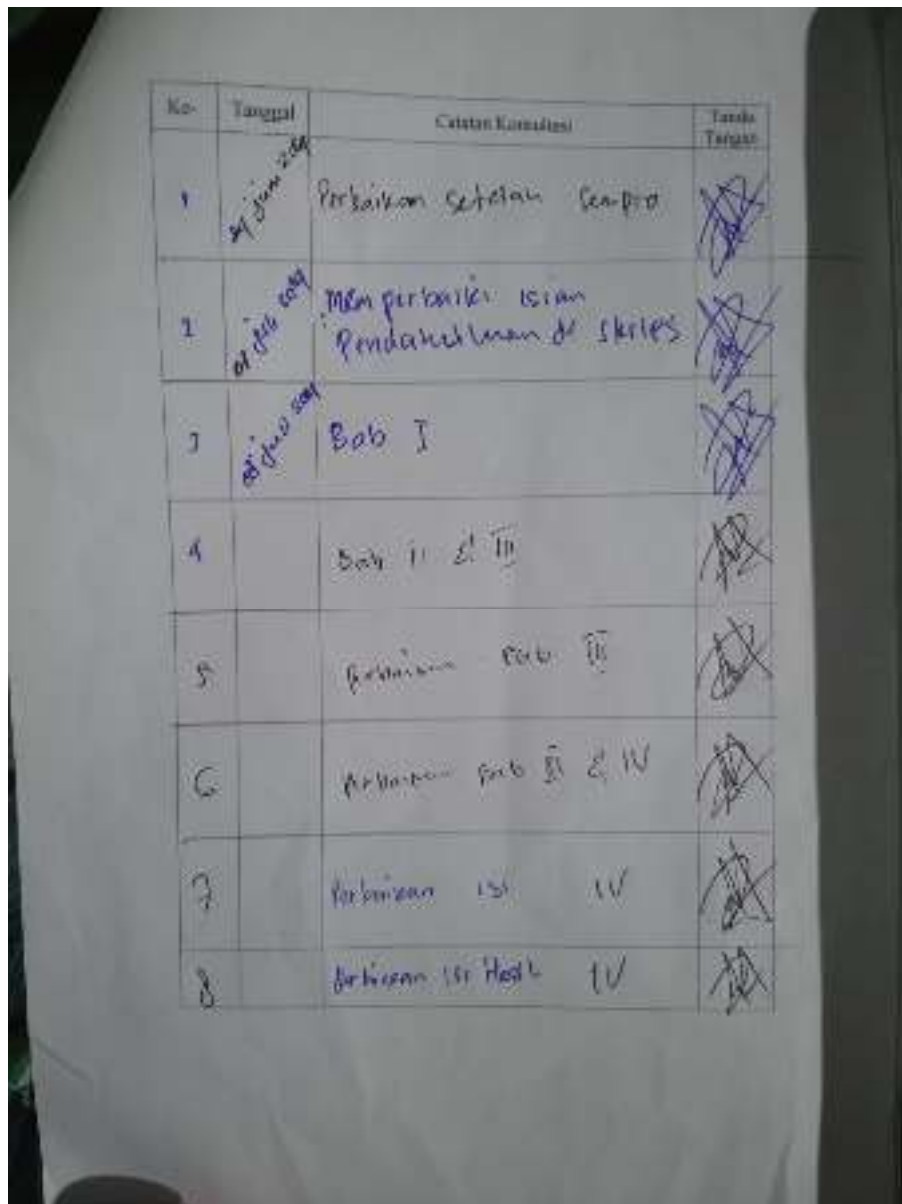 Ke- Tanggal Catatan Konsultasi Tanda
Tangan
1 Perbaikan setelah Sempro
2 Memperbaiki isian
Pendahuluan di skrips
3 Bab I
4 Bab II & III
5 Perbaikan Bab III
6 Perbaikan Bab III & IV
7 Perbaikan isi IV
8 Perbaikan isi Hasil IV